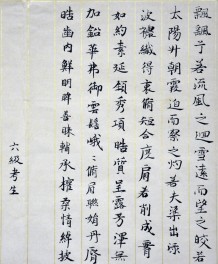 飄飄兮若流風之迴雪遠而望之皎若
太陽升朝霞迫而察之灼若夫渠出淥
波襛纖得衷脩短合度肩若削成腰
如約素延領秀項皓質呈露芳澤無
加鉛華弗御雲髻峨〻脩眉聯娟丹脣
皓齒内鮮明眸善睞輔承權柔情綽
六級考生